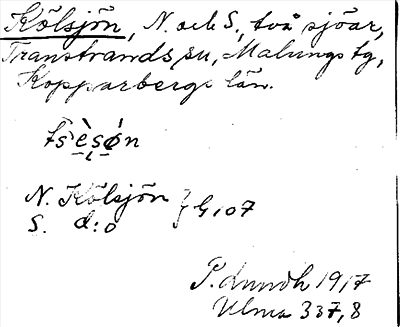 Kölsjön, N. och S., två sjöar,
Transtrands sn, Malungs tg,
Kopparbergs län.
N. Kölsjön } G 107
S. d:o
P. Lundh 1917
Ulma 337,8